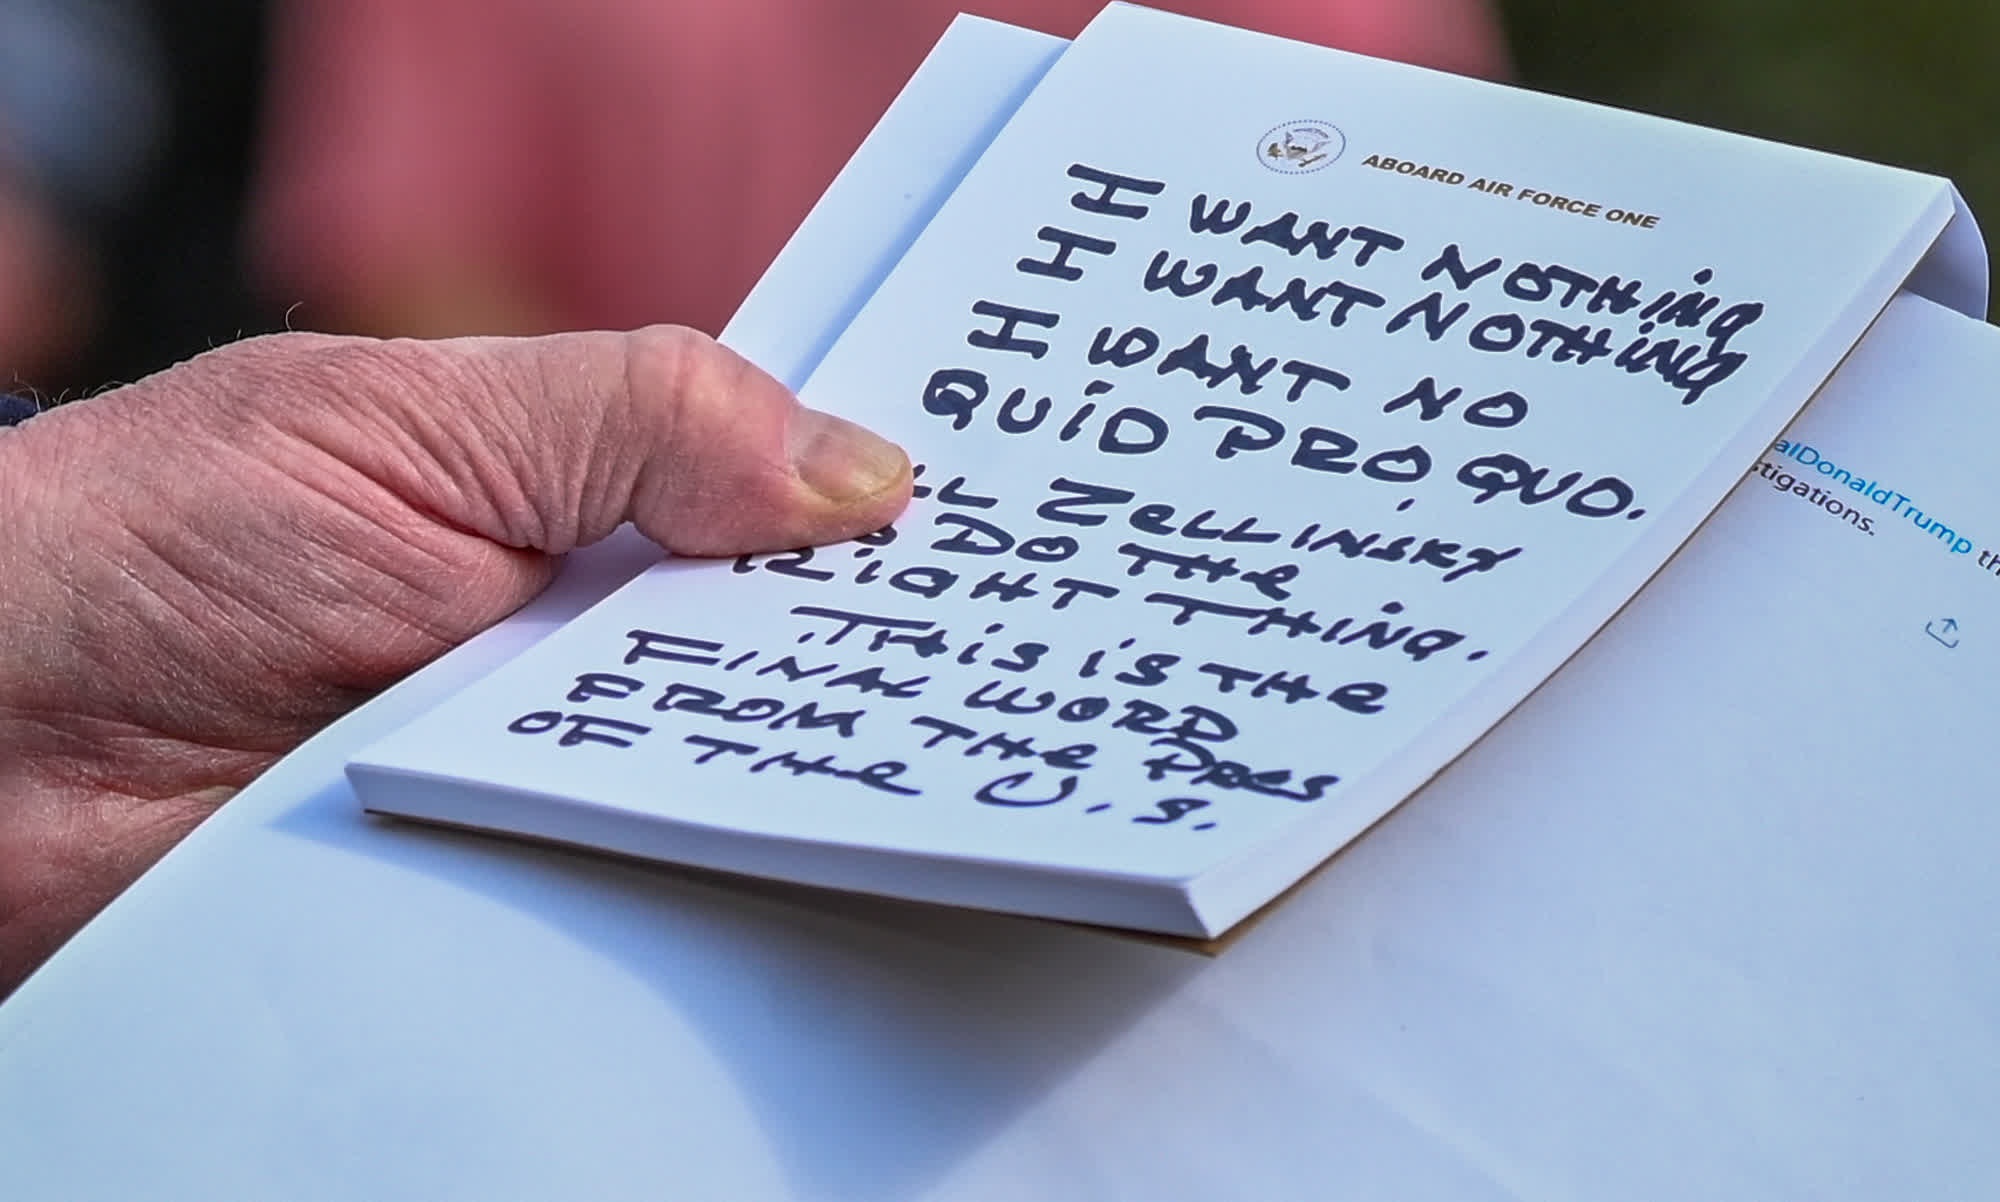 ABOARD AIR FORCE ONE
I WANT NOTHING
I WANT NOTHING
I WANT NO
QUID PRO QUO.
ZELLINSKY
DO THE
RIGHT THING.
THIS IS THE
FINAL WORD
FROM THE PRES
OF THE U.S.
alDonaldTrump th
stigations.